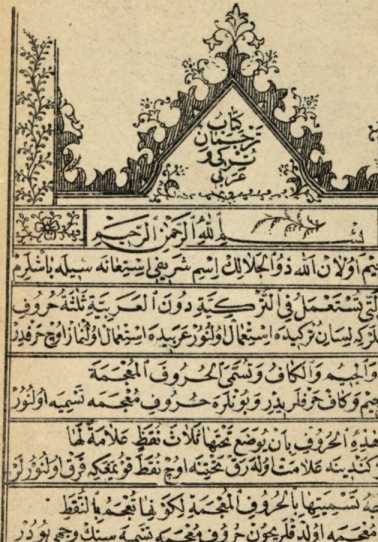 كتاب
ترجمان
تركي و
عربي
بسم الله الرحمن الرحيم
اولان الله ذو الجلالك اسم شريفي استعانه سيله باشلرم
تستعمل في التركية دون العربية ثلثة حروف
لسان تركيده استعمال اولنور عربيده استعمال اولنماز اوچ حرفدر
والجيم والكاف وتسمى الحروف المعجمة
جيم وكاف حرفلريدر وبونلره حروف معجمه تسميه اولنور
هذه الحروف بان يوضع تحتها ثلاث نقط علامة لها
علامت اوله رق تحتنه اوچ نقطه قومغله فرق اولنورلر
تسميتها بالحروف المعجمة لكونها تعجم بالنقط
معجمه اولدقلريچون حروف معجمه تسميه سنك وجهى بودر